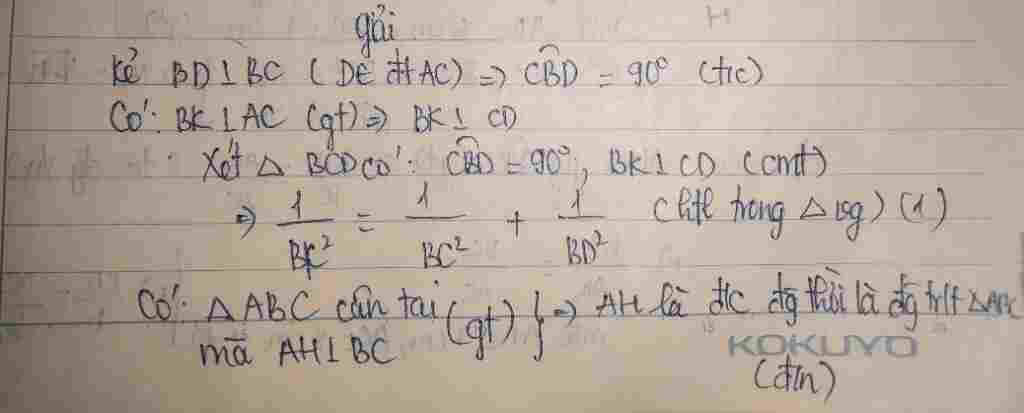 giải
Kẻ BD ⊥ BC (D ∈ đt AC) => CBD = 90° (t/c)
Có: BK ⊥ AC (gt) => BK ⊥ CD
Xét △ BCD có: CBD = 90°, BK ⊥ CD (cmt)
=> 1/BK² = 1/BC² + 1/BD² (htl trong △ vg) (1)
Có: △ ABC cân tại (gt) } => AH là đc đg thời là đg trt △ ABC
mà AH ⊥ BC
KOKUYO
(đln)